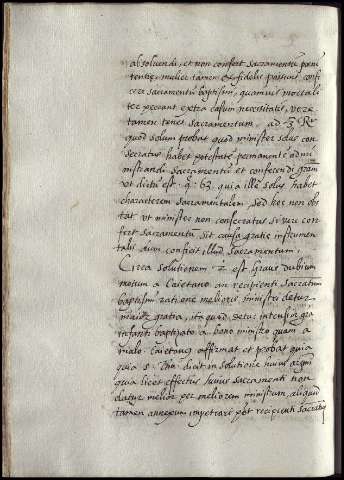 absoluendi, et non confert sacramentũ pœni
tentiæ, mulier tamen & fidelis possunt confi
cere sacramentũ baptismi, quamuis mortali
ter peccent extra casum necessitatis, vere
tamen tenet sacramentum. ad 3. Rr
quod solum probat quod minister solus con
secratus habet potestatẽ permanentẽ admi
nistrandi sacramentũ et conferendi gram
vt dictũ est. q. 63. quia ille solus habet
characterem sacramentalem sed hec non obs
tat vt minister non consecratus si vere con
fert sacramentũ sit causa gratiæ instrumen
talis dum conficit illud sacramentum.
Circa solutionem. 2. est graue dubium
motum a Caietano an recipienti sacratum
baptismũ ratione melioris ministri detur
maior gratia, ita quod detur intensior gra
infanti baptizato a bono ministro quam a
malo. Caietanus affirmat et probat quia
quia s. Tho. dicit in solutione huius argũti
quia licet effectus huius sacramenti non
datur melior per meliorem ministrum, aliquid
tamen annexum impetrari põt recipienti sacratũ